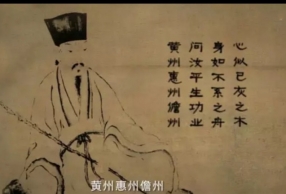 心似已灰之木
身如不系之舟
问汝平生功业
黄州惠州儋州
黄州惠州儋州